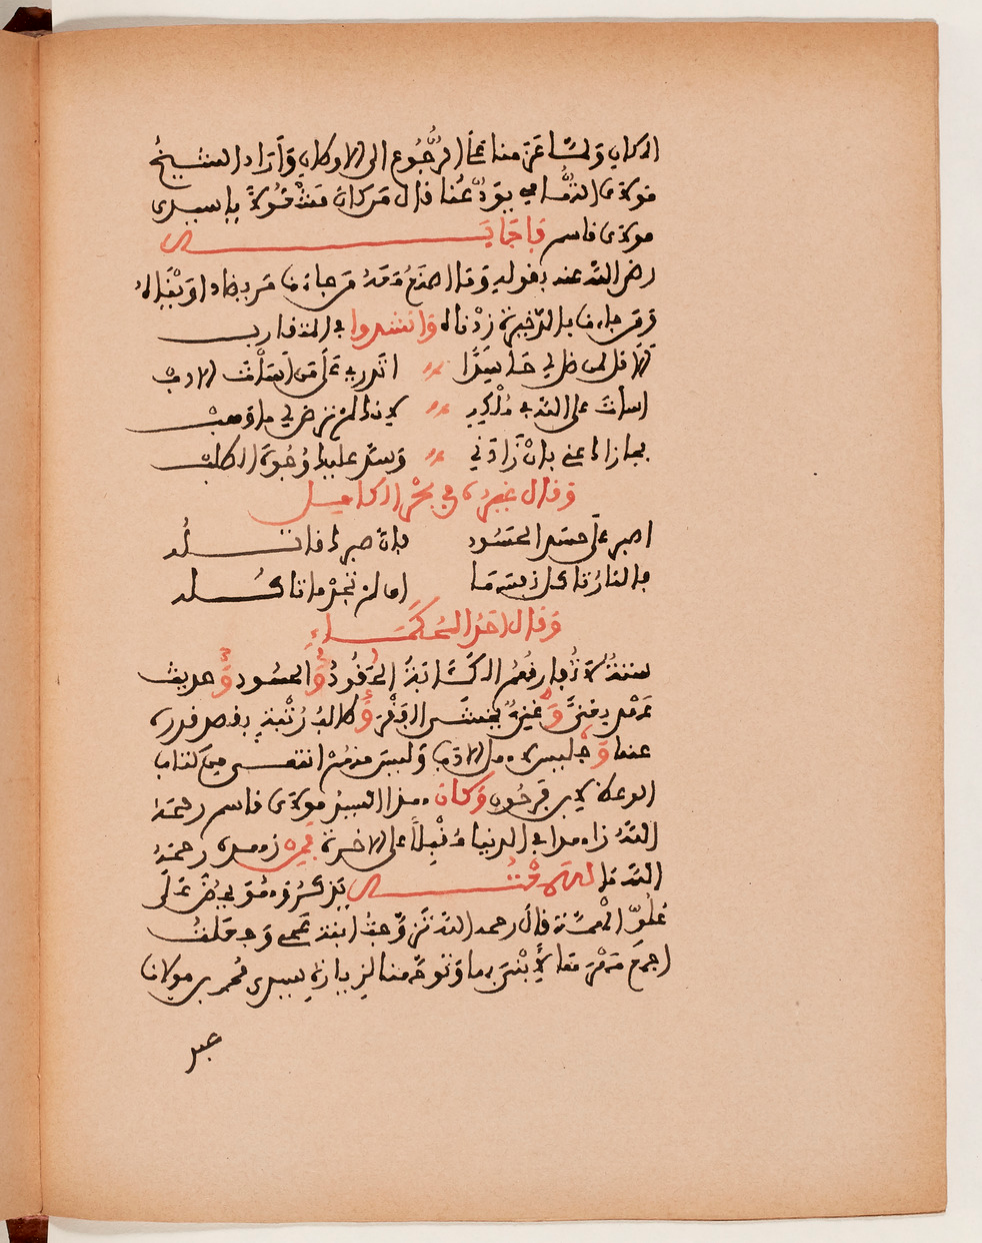 الركاب ولما عزمنا على الرجوع الى الاوطان وأراد الشيخ
مولاي التهامي يودعنا قال من كان منشغولا يا سيدي
مولاي قاسم فاجابني
رضي الله عنه بقوله وما اصنع معه من جاءنا مريضا داويناه
ومن جاءنا بالذخيرة زدناه وانشدوا في المتقارب
ألا قل لمن ظل لي حاسدا اتدري على من أسأت الادب
اسأت على الله في ملكه لانك لم ترض لي ما وهب
فجازاك عني بان زادني وسد عليك وجوه الطلب
وقال غيره في بحر الكامل
اصبر على حسد الحسود فان صبرك قاتله
فالنار تاكل نفسها ان لم تجد ما تاكله
وقال احد الحكماء
ستة لا تفارقهم الكئابة الحقود والحسود وحديث
عهد بغنى وغني يخشى الفقر وطالب رتبة يقصر قدره
عنها وجليس اهل الادب وليس منهم انتهى من كتاب
لابن فرحون وكان هذا السيد مولاي قاسم رحمه
الله زاهدا في الدنيا مقبلا على الاخرة فمن زهده رحمه
الله ما
علو الهمة قال رحمه الله تزوجت ابنة عمي وجعلت
اجمع مهرها لأبتني بها وتوجهنا لزيارة سيدي محمد بن مولانا
عبد